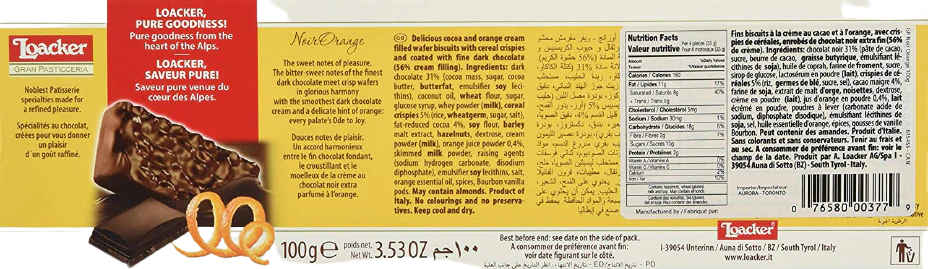 Loacker
GRAN PASTICCERIA
Noblest Patisserie
specialities made for
a refined pleasure.
Spécialités au chocolat,
créées pour vous donner
un plaisir
d'un goût raffiné.
LOACKER,
PURE GOODNESS!
Pure goodness from the
heart of the Alps.
LOACKER,
SAVEUR PURE!
Saveur pure venue du
cœur des Alpes.
Noir Orange
The sweet notes of pleasure.
The bitter-sweet notes of the finest
dark chocolate meet crisp wafers
in glorious harmony
with the smoothest dark chocolate
cream and a delicate hint of orange:
every palate's Ode to Joy.
Douces notes de plaisir.
Un accord harmonieux
entre le fin chocolat fondant,
le croustillant et le
moelleux de la crème au
chocolat noir extra
parfumé à l'orange.
GB Delicious cocoa and orange cream
filled wafer biscuits with cereal crispies
and coated with fine dark chocolate
(56% cream filling). Ingredients: dark
chocolate 31% (cocoa mass, sugar, cocoa
butter, butterfat, emulsifier soy leci-
thins), coconut oil, wheat flour, sugar,
glucose syrup, whey powder (milk), cereal
crispies 5% (rice, wheatgerm, sugar, salt),
fat-reduced cocoa 4%, soy flour, barley
malt extract, hazelnuts, dextrose, cream
powder (milk), orange juice powder 0,4%,
skimmed milk powder, raising agents
(sodium hydrogen carbonate, disodium
diphosphate), emulsifier soy lecithins, salt,
orange essential oil, spices, Bourbon vanilla
pods. May contain almonds. Product of
Italy. No colourings and no preserva-
tives. Keep cool and dry.
Nutrition Facts
Valeur nutritive
Per 4 pieces (33 g)
Pour 4 morceaux (33 g)
Amount
Teneur
% Daily Value
% Valeur quotidienne
Calories / Calories 180
Fat / Lipides 11g 17%
Saturated / Saturés 8g 40%
+ Trans / Trans 0g
Cholesterol / Cholestérol 5mg
Sodium / Sodium 30mg 1%
Carbohydrate / Glucides 18g 6%
Fibre / Fibres 2g 7%
Sugars / Sucres 10g
Protein / Protéines 2g
Vitamin A / Vitamine A 0%
Vitamin C / Vitamine C 0%
Calcium 4%
Iron / Fer 10%
Manufactured by / Fabriqué par:
Fins biscuits à la crème au cacao et à l'orange, avec cris-
pies de céréales, enrobés de chocolat noir extra fin (56%
de crème). Ingrédients: chocolat noir 31% (pâte de cacao,
sucre, beurre de cacao, graisse butyrique, émulsifiant lé-
cithines de soja), huile de coprah, farine de froment, sucre,
sirop de glucose, lactosérum en poudre (lait), crispies de cé-
réales 5% (riz, germes de blé, sucre, sel), cacao maigre 4%,
farine de soja, extrait de malt d'orge, noisettes, dextrose,
crème en poudre (lait), jus d'orange en poudre 0,4%, lait
écrémé en poudre, poudres à lever (carbonate acide de
sodium, diphosphate disodique), émulsifiant lécithines de
soja, sel, huile essentielle d'orange, épices, gousses de vanille
Bourbon. Peut contenir des amandes. Produit d'Italie.
Sans colorants et sans conservateurs. Tenir au frais et
au sec. A consommer de préférence avant fin: voir le
champ de la date. Produit par A. Loacker AG/Spa I -
39054 Auna di Sotto (BZ) - South Tyrol - Italy.
Importer/Importateur:
AURORA - TORONTO
0 76580 00377 9
100g e poids net. Net Wt. 3.53 OZ ١٠٠جم
Best before end: see date on the side of pack.
A consommer de préférence avant fin:
voir date figurant sur le côté.
PD - تاريخ الإنتاج/ED - تاريخ الانتهاء: انظر التاريخ على جانب العلبة
Loacker
I-39054 Unterinn / Auna di Sotto / BZ / South Tyrol / Italy
www.loacker.it